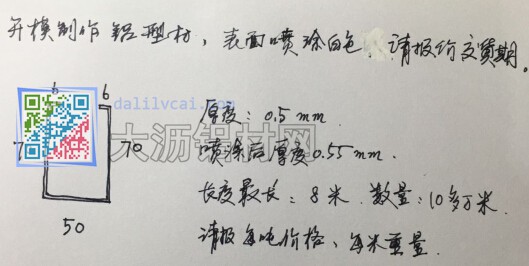 开模制作铝型材，表面喷涂白色，请报价交货期。
6 6
dalilvcai.com
厚度：0.5mm
大沥铝材网
7 70
喷涂后厚度0.55mm.
长度最长：8米 数量：10多万米
50
请报每吨价格、每米重量